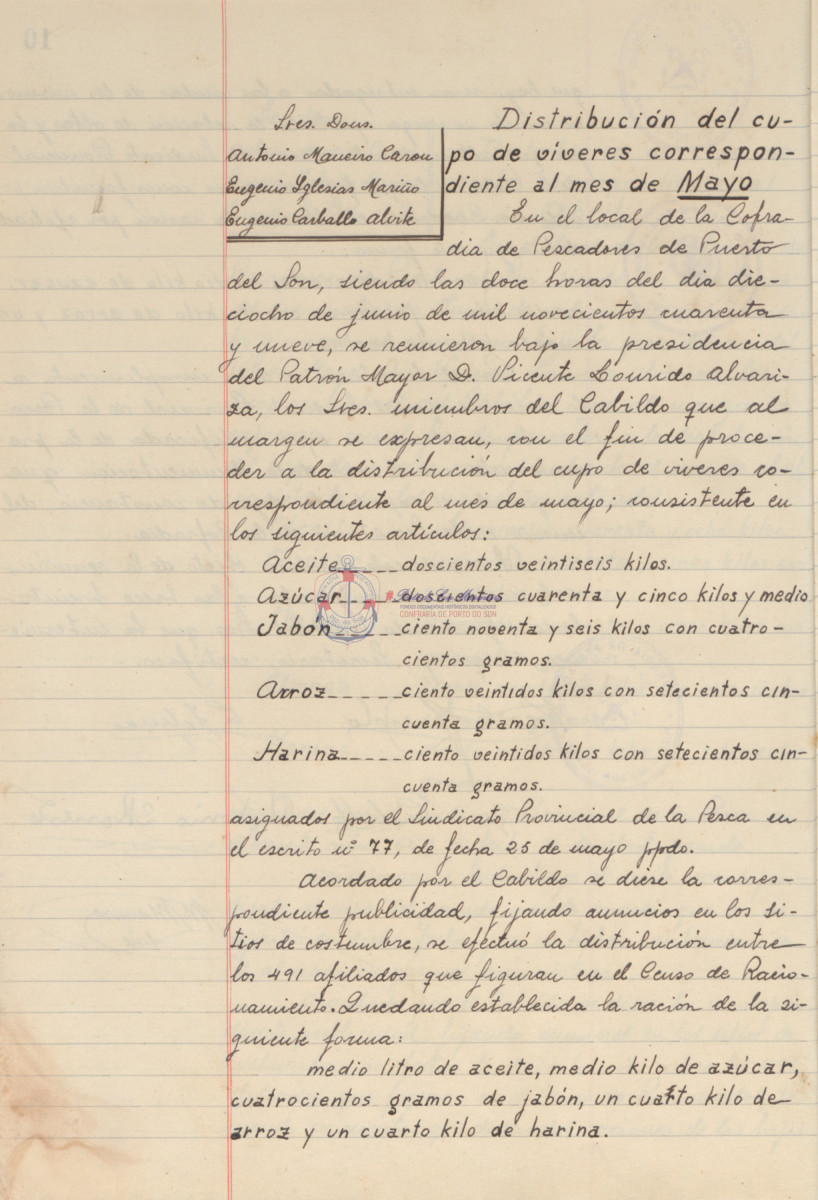 Sres. Dons.
Antonio Maneiro Carou
Eugenio Yglesias Mariño
Eugenio Carballo Alvite
Distribución del cu-
po de víveres correspon-
diente al mes de Mayo
En el local de la Cofra-
dia de Pescadores de Puerto
del Son, siendo las doce horas del dia die-
ciocho de junio de mil novecientos cuarenta
y nueve, se reunieron bajo la presidencia
del Patrón Mayor D. Vicente Lourido Alvari-
za, los Sres. miembros del Cabildo que al
margen se expresan, con el fin de proce-
der a la distribución del cupo de viveres co-
rrespondiente al mes de mayo; consistente en
los siguientes artículos:
Aceite_____doscientos veintiseis kilos.
Azúcar_____doscientos cuarenta y cinco kilos y medio
Jabon_____ciento noventa y seis kilos con cuatro-
cientos gramos.
Arroz_____ciento veintidos kilos con setecientos cin-
cuenta gramos.
Harina_____ciento veintidos kilos con setecientos cin-
cuenta gramos.
asignados por el Sindicato Provincial de la Pesca en
el escrito nº 77, de fecha 25 de mayo ppdo.
Acordado por el Cabildo se diese la corres-
pondiente publicidad, fijando anuncios en los si-
tios de costumbre, se efectuó la distribución entre
los 491 afiliados que figuran en el Censo de Racio-
namiento. Quedando establecida la ración de la si-
guiente forma:
medio litro de aceite, medio kilo de azúcar,
cuatrocientos gramos de jabón, un cuarto kilo de
arroz y un cuarto kilo de harina.
CONFRARÍA DE PORTO DO SON